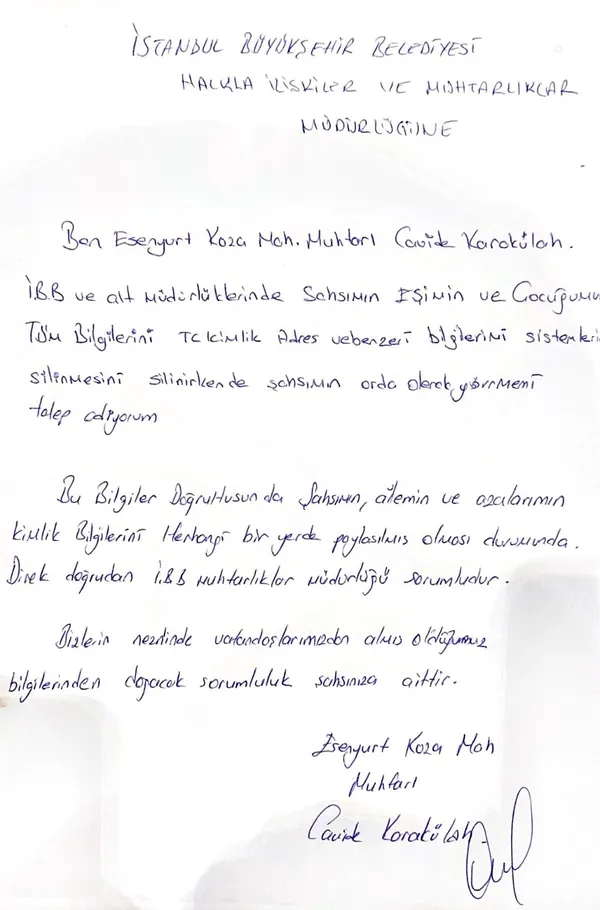 İSTANBUL BÜYÜKŞEHİR BELEDİYESİ
HALKLA İLİSKİLER VE MUHTARLIKLAR
MÜDÜRLÜĞÜNE
Ben Esenyurt Koza Mah. Muhtarı Cavide Karakülah.
İBB ve alt Müdürlüklerinde Sahsımın Eşimin ve Cocuğumu
Tüm Bilgilerini TC kimlik Adres vebenzeri bilgilerimi sistemleri
silinmesini silinirkende şahsımın orda olarak görmemi
talep ediyorum
Bu Bilgiler Doğrultusunda Şahsımın, ailemin ve azalarımın
kimlik Bilgilerini Herhangi bir yerde paylasılmıs olması durumunda.
Direk doğrudan İ.B.B Muhtarlıklar Müdürlüğü sorumludur.
Bizlerin nezdinde vatandaşlarımızdan almıs olduğumuz
bilgilerinden doğacak sorumluluk şahsınıza aittir.
Esenyurt Koza Mah
Muhtarı
Cavide Karakülah